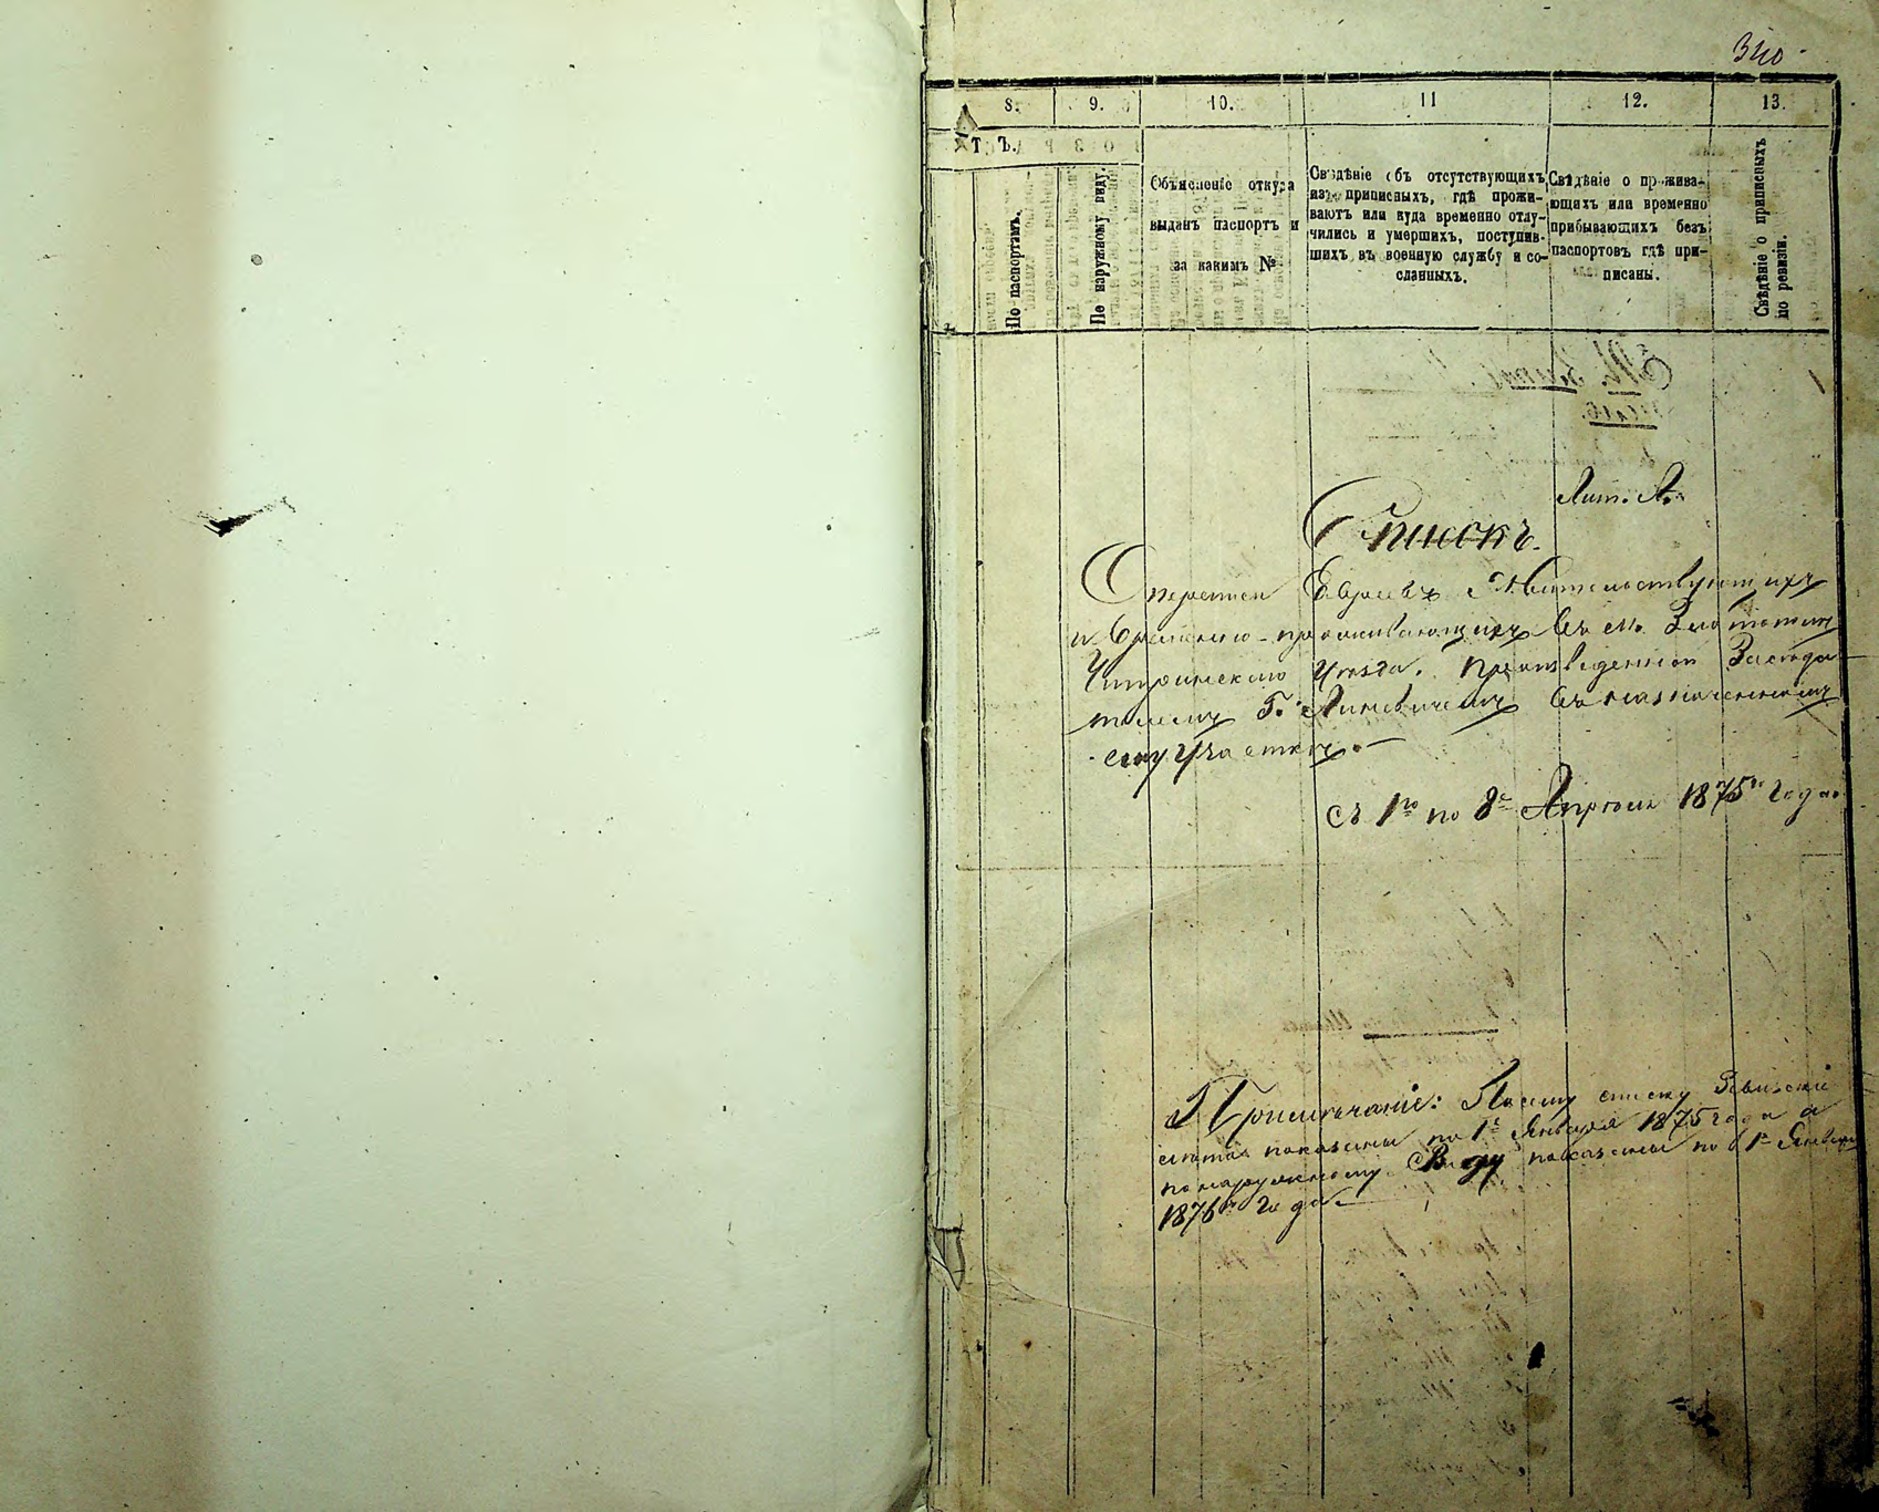 340
8. 9. 10. 11 12. 13.
Т Ъ.
По паспортамъ.
По наружному виду.
Объясненіе откуда
выданъ паспортъ и
за какимъ №
Свѣдѣніе объ отсутствующихъ
изъ приписныхъ, гдѣ прожи-
ваютъ или куда временно отлу-
чились и умершихъ, поступив-
шихъ въ военную службу и со-
сланныхъ.
Свѣдѣніе о прожива-
ющихъ или временно
прибывающихъ безъ
паспортовъ гдѣ при-
писаны.
Свѣдѣніе о приписныхъ
по ревизіи.
Лит. А.
Списокъ.
О переписи Евреевъ Жительствующихъ
и временно-проживающихъ въ м. Златополѣ
Чигринскаго Уѣзда. Произведенной Засѣда-
телемъ Г. Линевичемъ въ назначенномъ
ему Участкѣ.
съ 1го по 8е Апрѣля 1875го Года.
Примѣчаніе: По сему списку Ревизскіе
лѣта показаны по 1е Января 1875 года а
по наружному Виду показаны по 1е Января
1876го Года